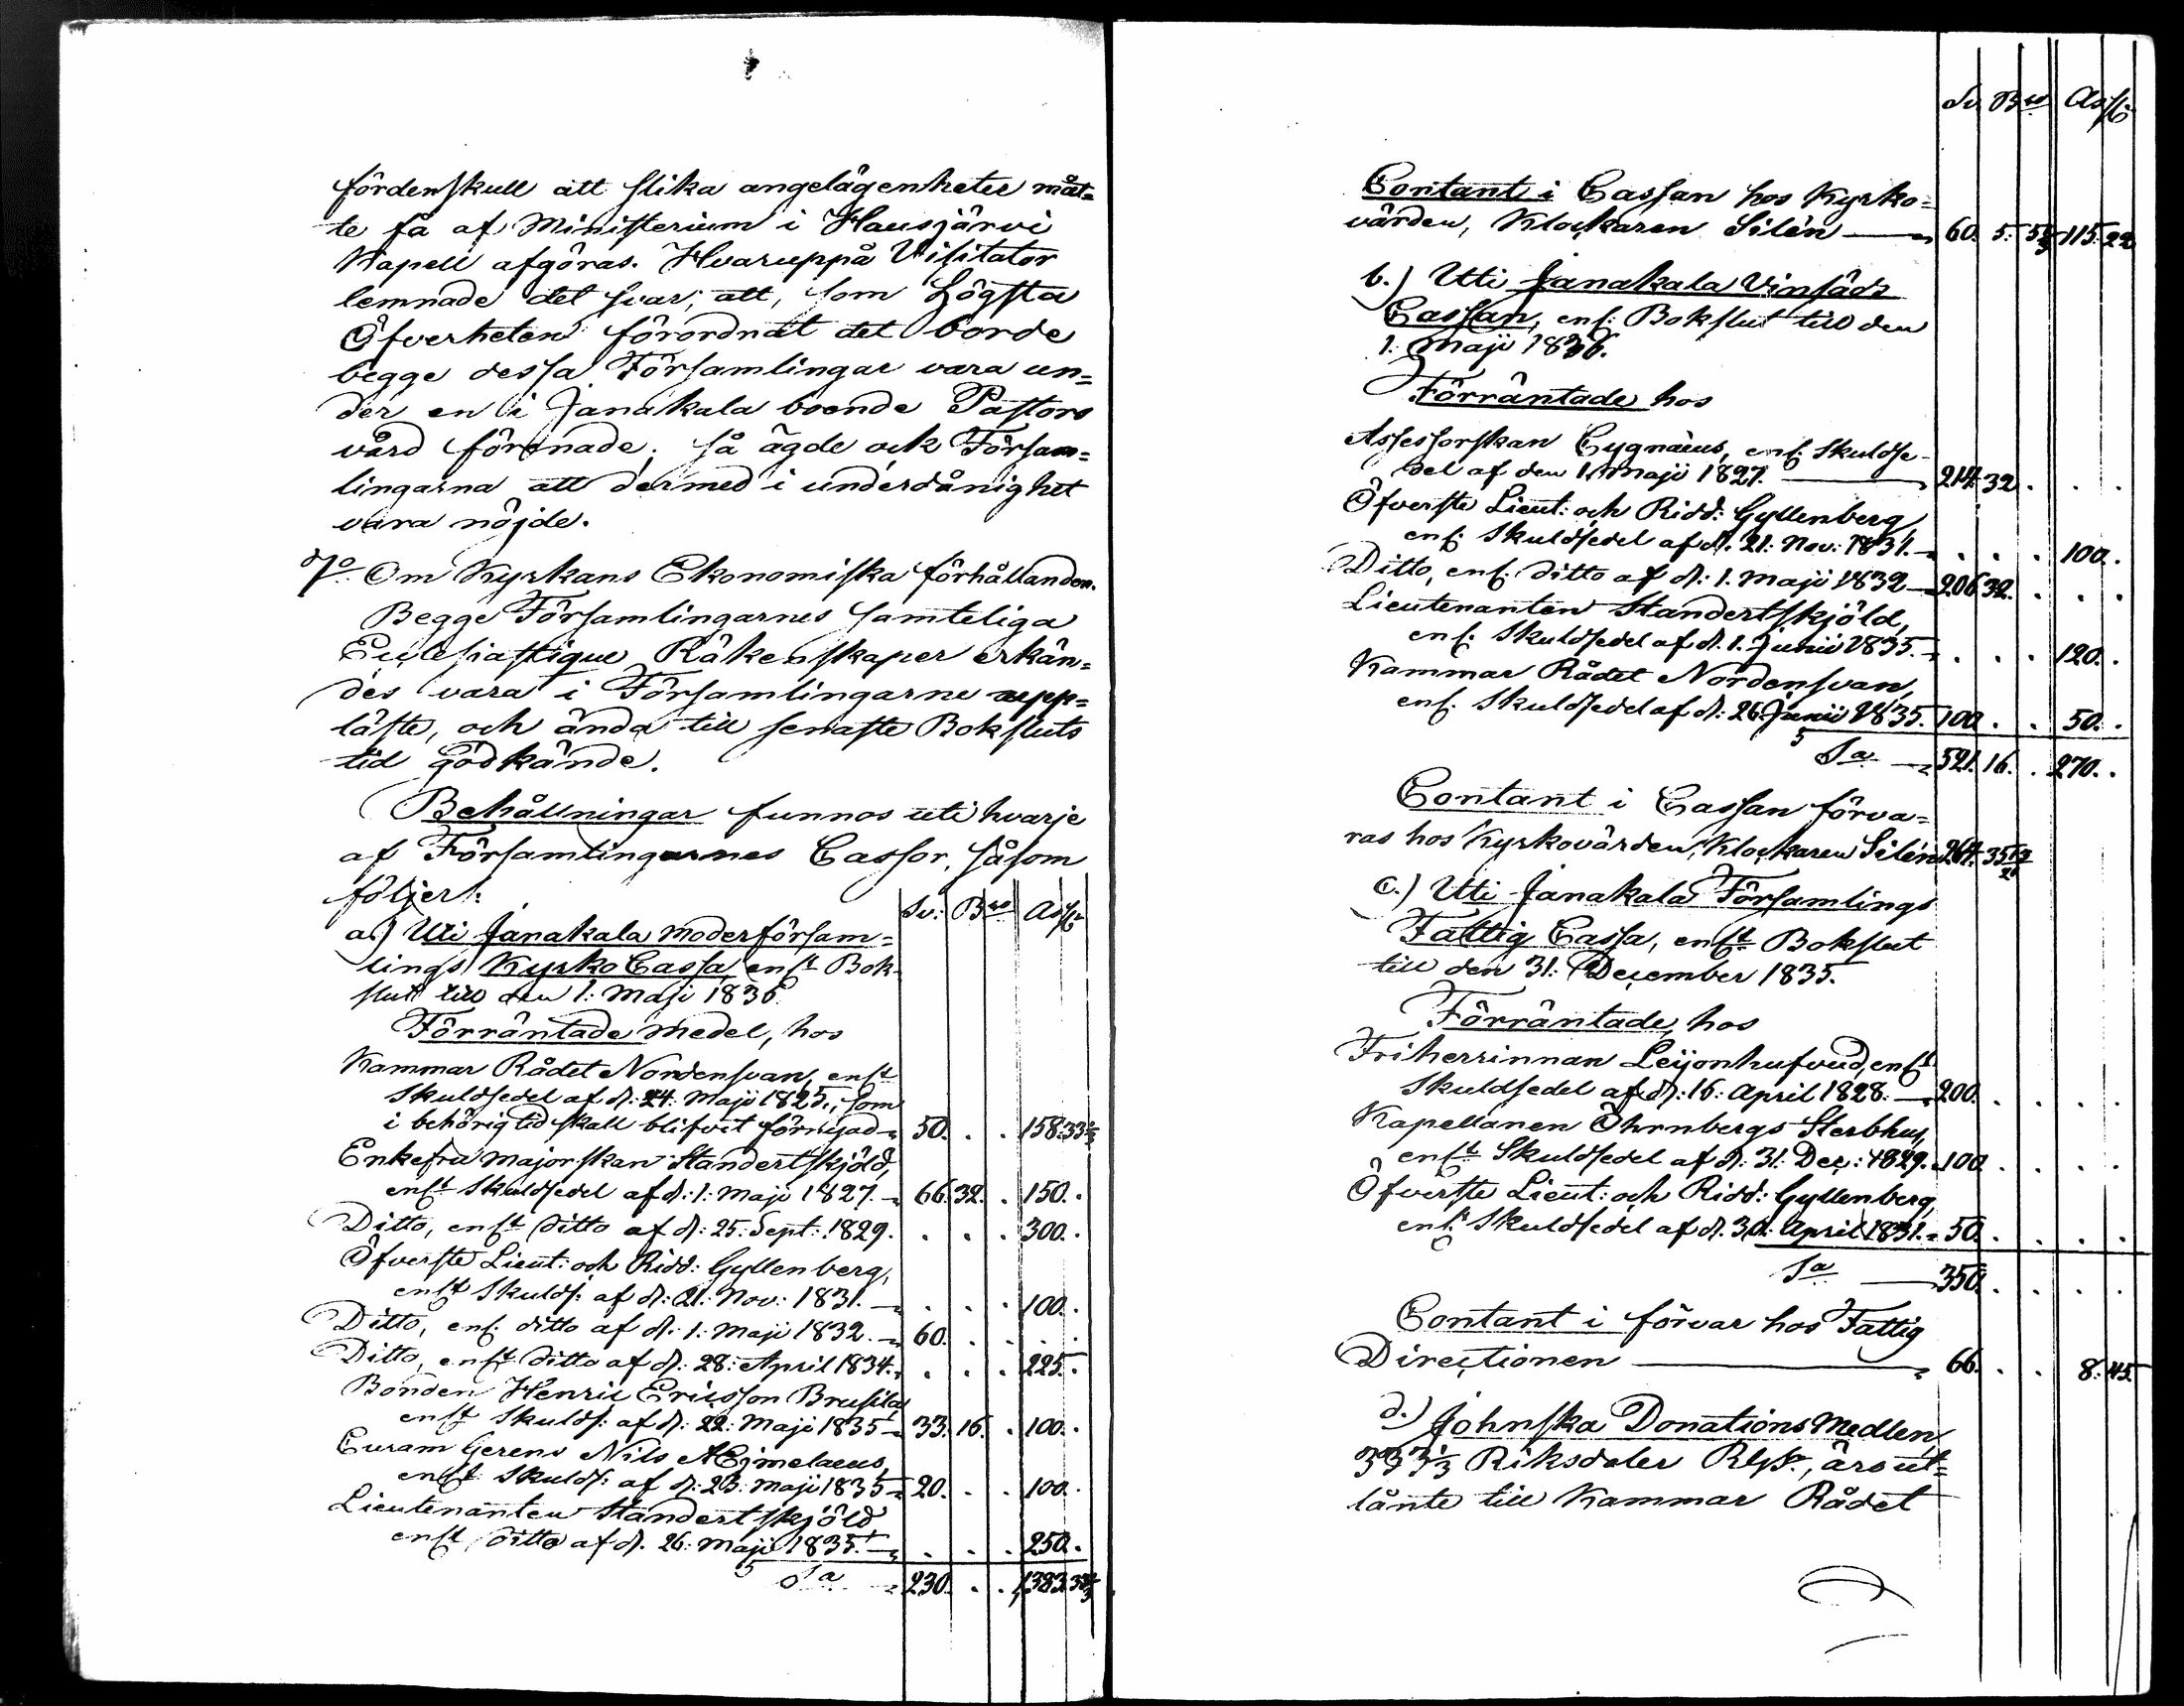 fördenskull att slika angelägenheter måt=
te få af Ministerium i Hausjärvi
Kapell afgöras. Hvaruppå Visitator
lemnade det svar; att, som Högsta
Öfverheten förordnat det borde
begge dessa Församlingar vara un=
der en i Janakala boende Pastors
vård förenade; så ägde ock Försam=
lingarna att dermed i underdånighet
vara nöjde.
7o Om Kyrkans Ekonomiska förhållanden.
Begge Församlingarnes samteliga
Ecclesiastique Räkenskaper erkän=
des vara i Församlingarne upp=
läste, och ända till senaste Boksluts
tid godkände.
Behållningar funnos uti hvarje
af Församlingarnes Cassor, såsom
följer: Sv: Bco Asse
a.) Uti Janakala moderförsam=
lings Kyrko Cassa, enst Bok-
slut till den 1: Maji 1836.
Förräntade medel, hos
Kammar Rådet Nordensvan, enst
Skuldsedel af d: 24: Maji 1825., som
i behörig tid skall blifvit förnyad 50. . . 158. 33 1/3
Enkefru Majorskan Standertskjöld,
enst Skuldsedel af d: 1: Maji 1827. 66. 32. . 150. .
Ditto, enst ditto af d: 25: Sept: 1829. . . . 300. .
Öfverste Lieut: och Ridd: Gyllenberg,
enst Skulds: af d: 21: Nov: 1831. . . . 100. .
Ditto, ens. ditto af d: 1: Maji 1832. 60. . . . .
Ditto, enst ditto af d: 28: April 1834. . . . 225. .
Bonden Henric Ericsson Brusila,
enst Skulds: af d: 22: Maji 1835 33. 16. . 100. .
Curam Gerens Nils AEjmelaeus,
enst Skulds: af d: 23: Maji 1835 20. . . 100. .
Lieutenanten Standertskjöld
enst ditto af d. 26: Maji 1835. . . . 250. .
Sa 230. . . 1,383. 33 1/3
Sv. Bco Asse
Contant i Cassan hos Kyrko=
värden, Klockaren Silén 60. 5. 5 1/3 115. 22
b.) Uti Janakala Vinsäds
Cassan, ens: Bokslut till den
1: Maji 1836.
Förräntade hos
Assessorskan Cygnaeus, ens: Skuldse-
del af den 1. Maji 1827. 214. 32. . . .
Öfverste Lieut: och Ridd: Gyllenberg,
ens: Skuldsedel af d. 21: Nov: 1831. . . . 100. .
Ditto, ens: ditto af d: 1. Maji 1832 206. 32. . . .
Lieutenanten Standertskjöld,
ens: Skuldsedel af d. 1. Junii 1835. . . . 120. .
Kammar Rådet Nordensvan,
ens: Skuldsedel af d: 26. Junii 1835. 100. . . 50. .
Sa 521. 16. . 270. .
Contant i Cassan förva=
ras hos Kyrkovärden, Klockaren Silén 264. 35
c.) Uti Janakala Församlings
Fattig Cassa, enst Bokslut
till den 31: December 1835.
Förräntade, hos
Friherrinnan Leijonhufvud, enst
Skuldsedel af d: 16: April 1828. 200. . . . .
Kapellanen Öhrnbergs Sterbhus,
enst Skuldsedel af d: 31: Dec: 1829. 100. . . . .
Öfverste Lieut: och Ridd: Gyllenberg,
enst Skuldsedel af d. 30: April 1831. 50. . . . .
Sa 350. . . . .
Contant i förvar hos Fattig
Directionen 66. . . 8. 45
d.) Johnska Donations Medlen,
333 1/3 Riksdaler Rgs., äro ut=
lånte till Kammar Rådet